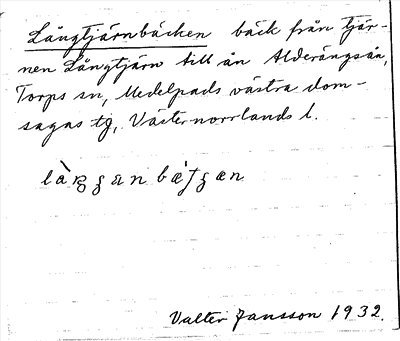 Långtjärnbäcken bäck från tjär-
nen Långtjärn till ån Alderängsån,
Torps sn, Medelpads västra dom-
sagas tg, Västernorrlands l.
Valter Jansson 1932.